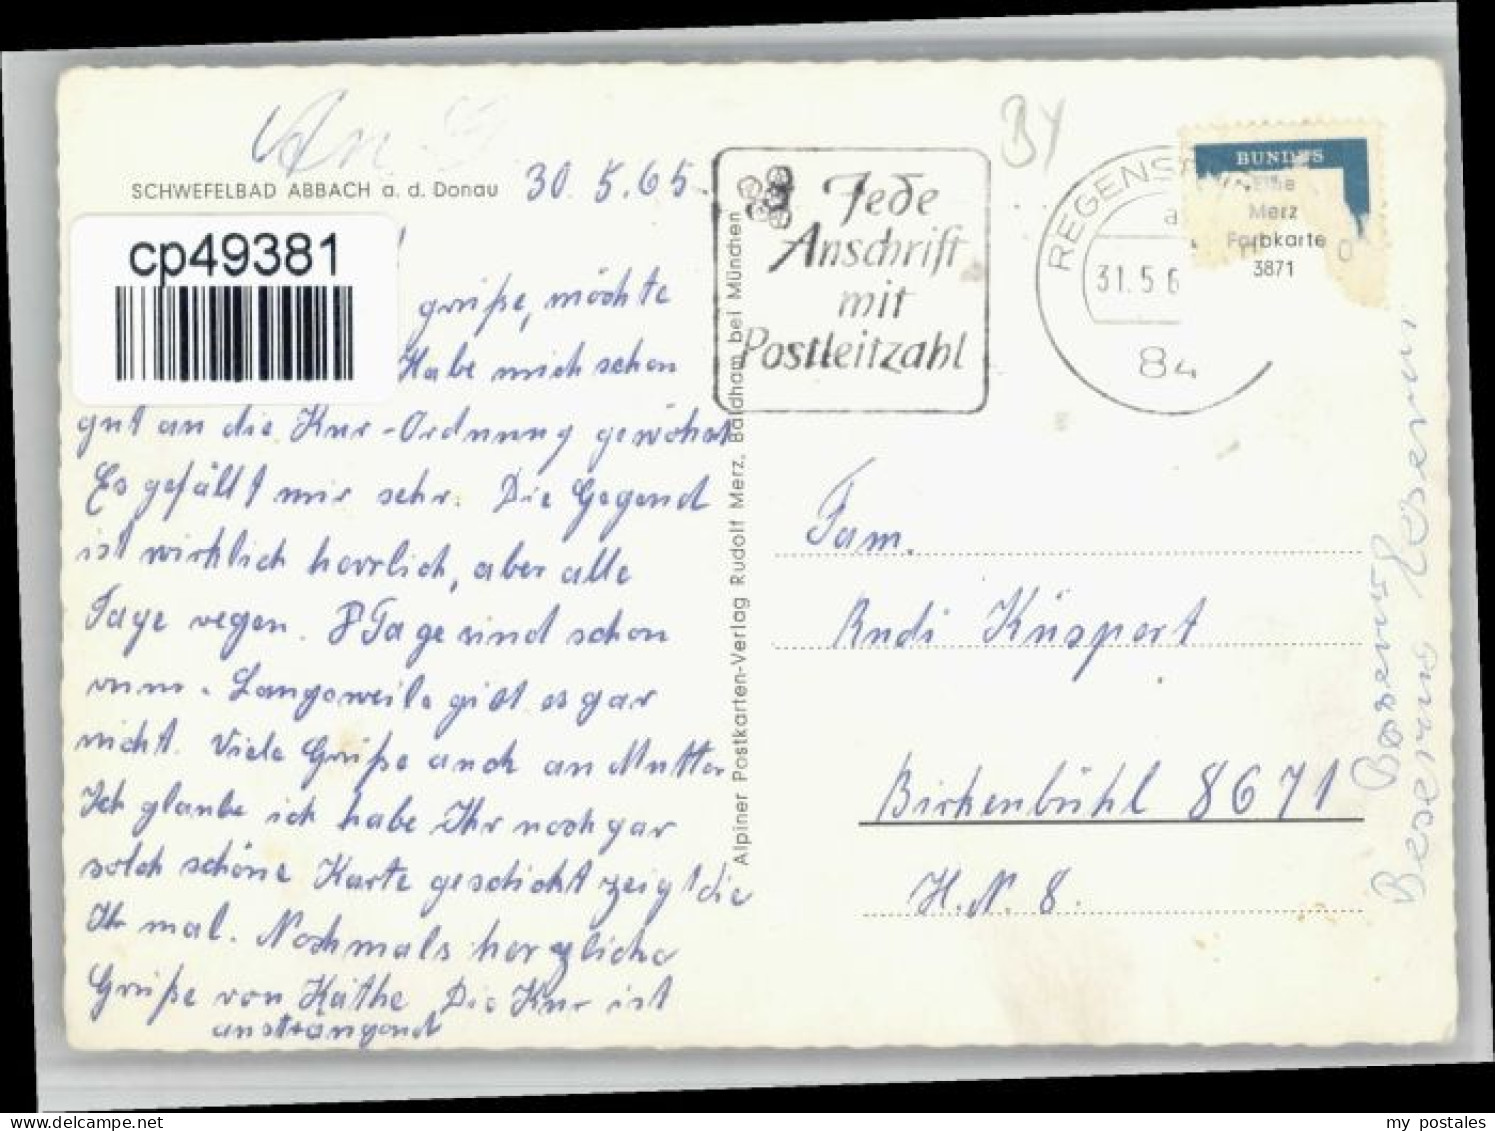 An
SCHWEFELBAD ABBACH a. d. Donau
30. 5. 65.
cp49381
grüße, möchte
Habe mich schon
gut an die Kur-Ordnung gewöhnt
Es gefällt mir sehr. Die Gegend
ist wirklich herrlich, aber alle
Tage regen. 8 Tage sind schon
rum. Langeweile gibt es gar
nicht. Viele Grüße auch an Mutter
Ich glaube ich habe Ihr noch gar
solch schöne Karte geschickt zeigt die
Ihr mal. Nochmals herzliche
Grüße von Käthe Die Kur ist
anstrangend
Alpiner Postkarten-Verlag Rudolf Merz, Baldham bei München
Jede
Anschrift
mit
Postleitzahl
BY
REGENSB
a
31.5.6
84
BUNDES
Merz
Farbkarte
3871
Fam.
Rudi Küspert
Birkenbühl 8671
H. N. 8.
my postales